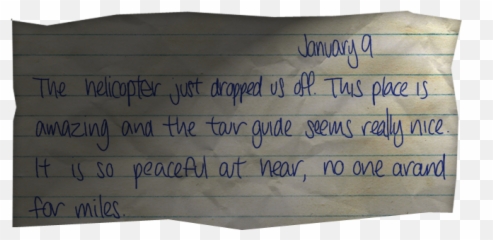 January 9
The helicopter just dropped us off. This place is
amazing and the tour guide seems really nice.
It is so peaceful out near, no one around
for miles.